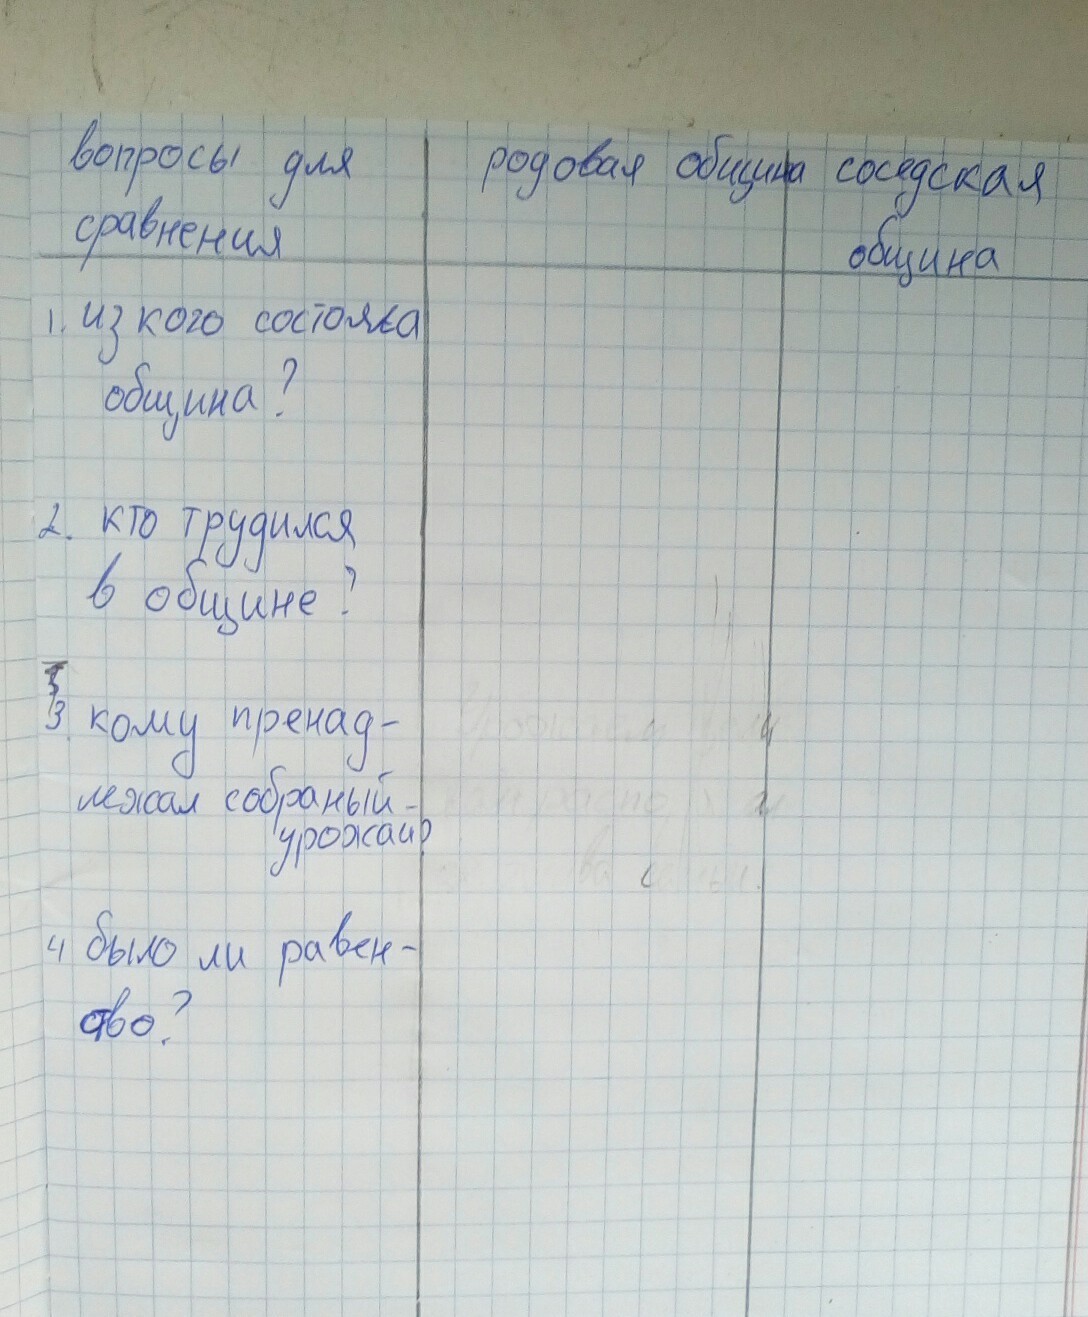 вопросы для
сравнения
родовая община
соседская
община
1. из кого состояла
община?
2. кто трудился
в общине?
3. кому пренад-
лежал собраный-
урожай?
4 было ли равен-
ство?